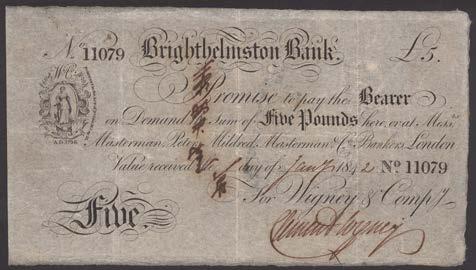 No. 11079 Brighthelmston Bank. £5.
W&Co
I Promise to pay the Bearer
on Demand Sum of Five Pounds Here, or at Messrs
Masterman, Peters, Mildred, Masterman & Co. Bankers London
Value received day of Jany 1842 No 11079
For Wigney & Compy
Five.